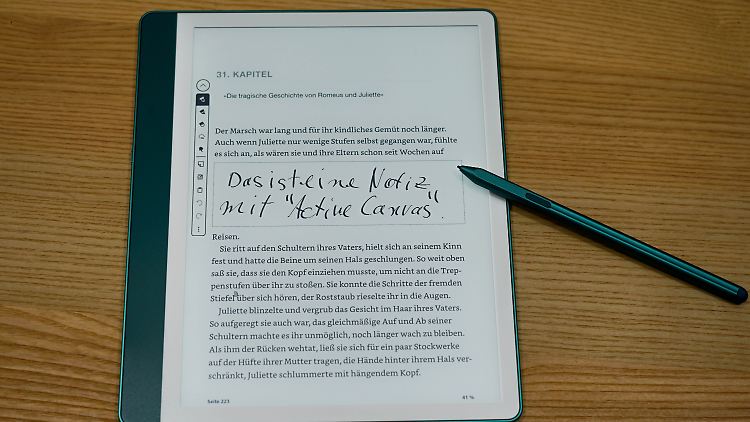 31. KAPITEL
»Die tragische Geschichte von Romeus und Juliette«
Der Marsch war lang und für ihr kindliches Gemüt noch länger.
Auch wenn Juliette nur wenige Stufen selbst gegangen war, fühlte
es sich an, als wären sie und ihre Eltern schon seit Wochen auf
Das ist eine Notiz
mit "Active Canvas".
Reisen.
Sie ritt auf den Schultern ihres Vaters, hielt sich an seinem Kinn
fest und hatte die Beine um seinen Hals geschlungen. So weit oben
saß sie, dass sie den Kopf einziehen musste, um nicht an die Trep-
penstufen über ihr zu stoßen. Sie konnte die Schritte der fremden
Stiefel über sich hören, der Roststaub rieselte ihr in die Augen.
Juliette blinzelte und vergrub das Gesicht im Haar ihres Vaters.
So aufgeregt sie auch war, das gleichmäßige Auf und Ab seiner
Schultern machte es ihr unmöglich, noch länger wach zu bleiben.
Als ihm der Rücken wehtat, ließ sie sich für ein paar Stockwerke
auf der Hüfte ihrer Mutter tragen, die Hände hinter ihrem Hals ver-
schränkt, Juliette schlummerte mit hängendem Kopf.
Seite 223
41 %